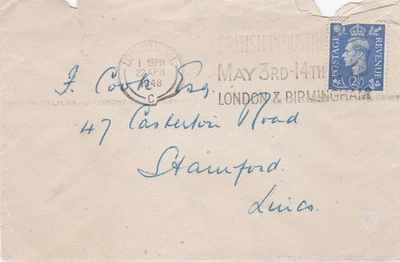 LONDON, W.1.
1 15PM
22 APR
1948
C
BRITISH INDUSTRIES
MAY 3RD-14TH
LONDON & BIRMINGHAM
POSTAGE
REVENUE
2½
F. Cook Esq.
47 Casterton Road
Stamford.
Lincs.